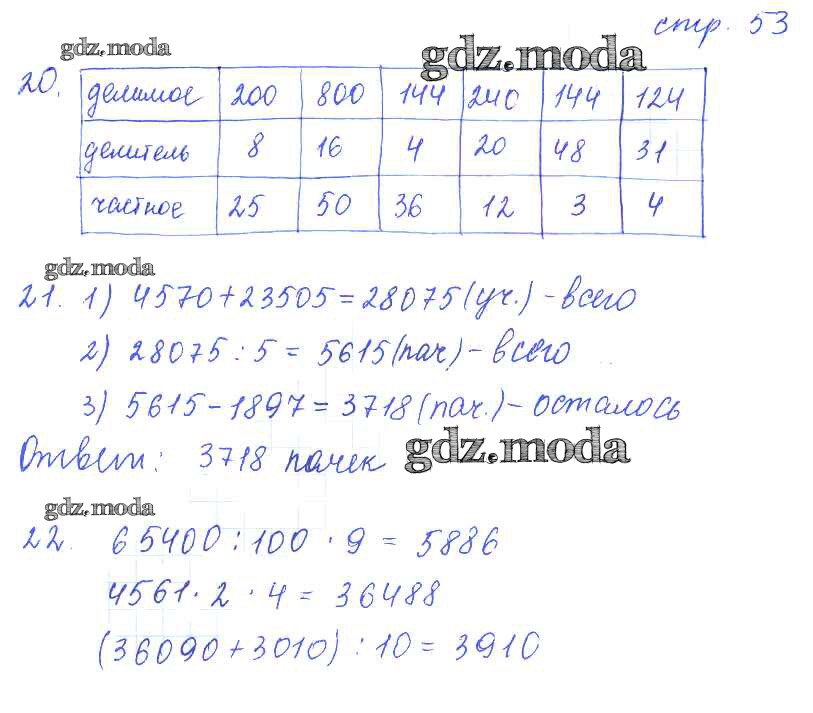 стр. 53
gdz.moda
gdz.moda
20.
делимое 200 800 144 240 144 124
делитель 8 16 4 20 48 31
частное 25 50 36 12 3 4
gdz.moda
21. 1) 4570+23505=28075(уч.)-всего
2) 28075:5=5615(пач)-всего
3) 5615-1897=3718(пач.)-осталось
Ответ: 3718 пачек
gdz.moda
gdz.moda
22. 65400:100·9=5886
4561·2·4=36488
(36090+3010):10=3910